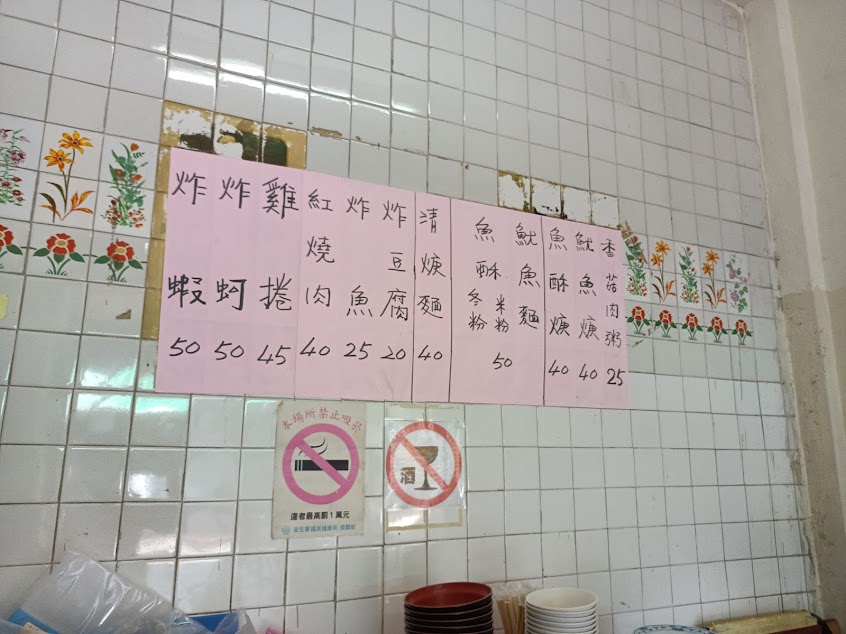 香菇肉粥 25
魷魚焿 40
魚酥焿 40
魷魚麵
魚酥 米粉 冬粉
50
清焿麵 40
炸豆腐 20
炸魚 25
紅燒肉 40
雞捲 45
炸蚵 50
炸蝦 50
本場所禁止吸菸
違者最高罰1萬元
酒